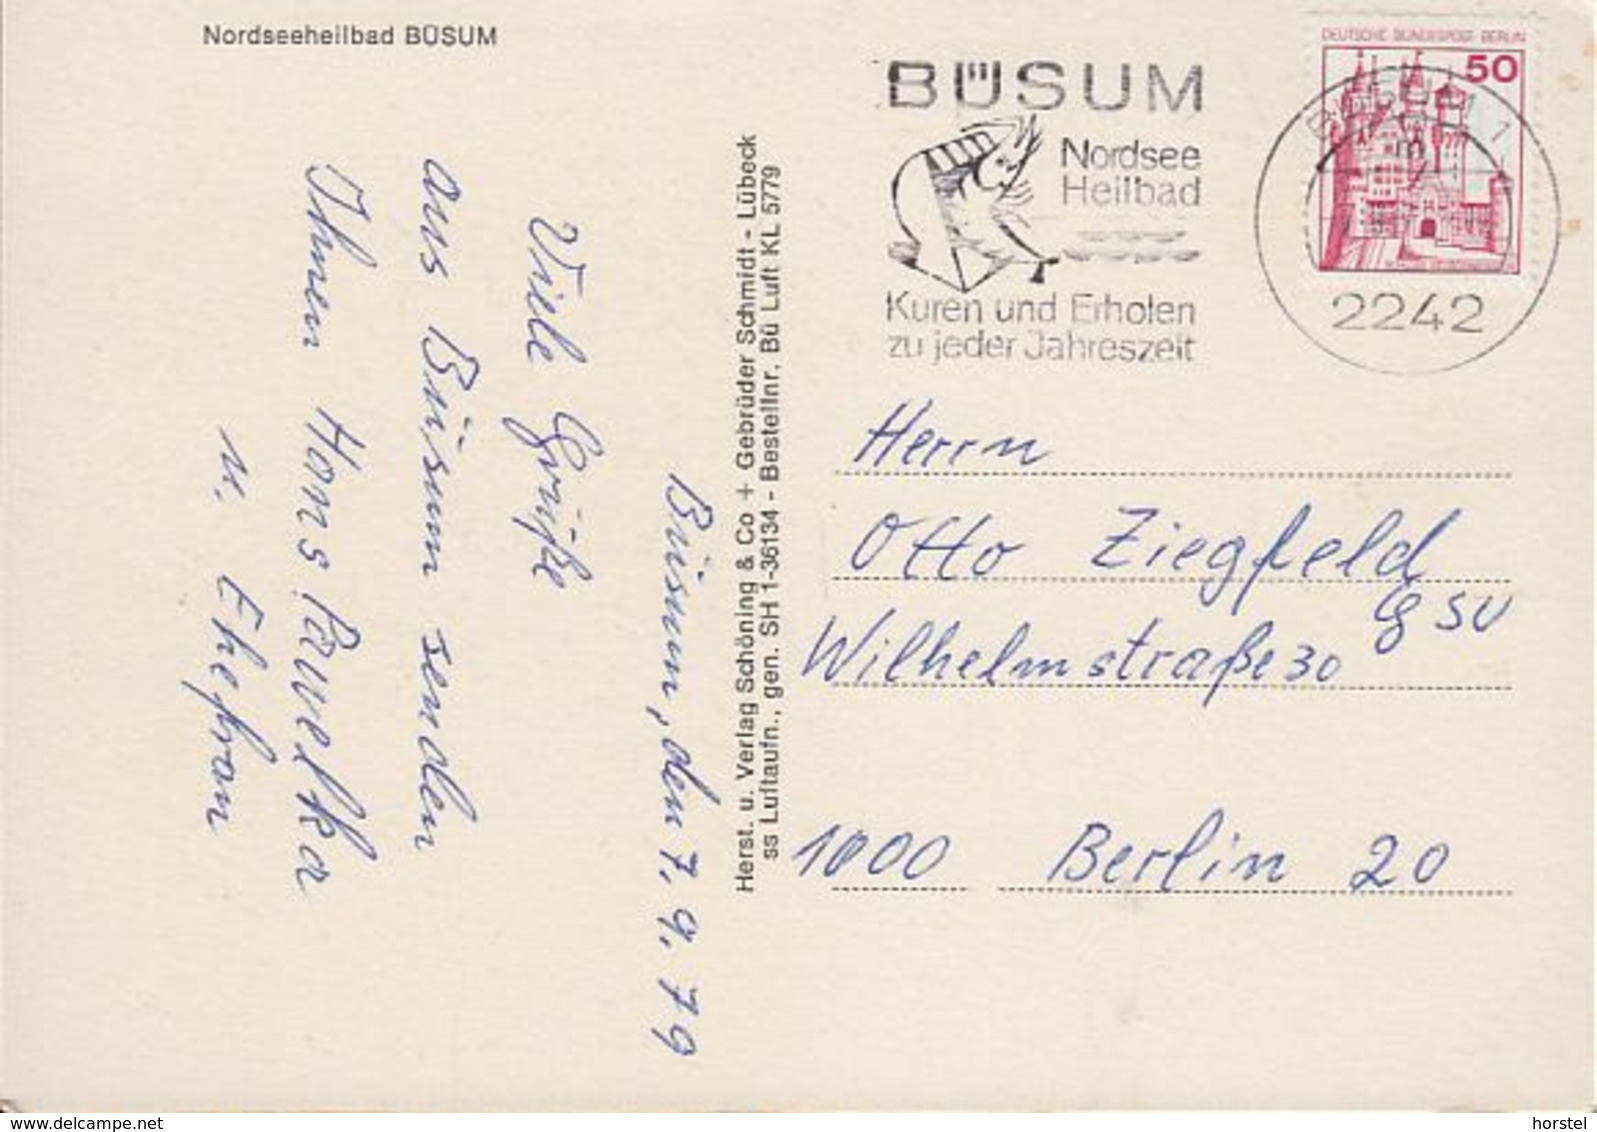 Nordseeheilbad BÜSUM
BÜSUM
Nordsee
Heilbad
Kuren und Erholen
zu jeder Jahreszeit
DEUTSCHE BUNDESPOST BERLIN
50
m
2242
Büsum, den 7. 9. 79
Viele Grüße
aus Büsum senden
Ihnen Hans Pawelka
u. Ehefrau
Herst. u. Verlag Schöning & Co + Gebrüder Schmidt - Lübeck
ss Luftaufn., gen. SH 1-36134 - Bestellnr. Bü Luft KL 5779
Herrn
Otto Ziegfeld
Wilhelmstraße 30
1000 Berlin 20
delcampe.net
horstel